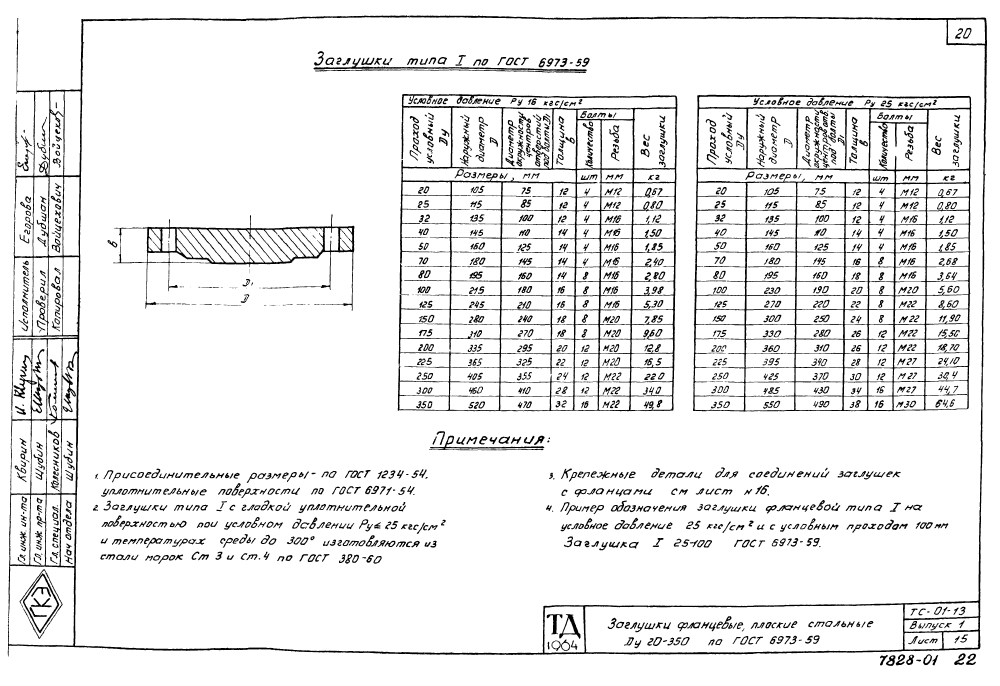 20
Заглушки типа I по ГОСТ 6973-59
Условное давление Ру 16 кгс/см²
Проход условный Ду | Наружный диаметр D | Диаметр окружности центров отверстий под болты D₁ | Толщина в | Болты | Вес заглушки
Количество | Резьба
Размеры, мм | шт | мм | кг
20 105 75 12 4 М12 0,67
25 115 85 12 4 М12 0,80
32 135 100 12 4 М16 1,12
40 145 110 14 4 М16 1,50
50 160 125 14 4 М16 1,85
70 180 145 14 4 М16 2,40
80 195 160 14 8 М16 2,80
100 215 180 16 8 М16 3,98
125 245 210 16 8 М16 5,30
150 280 240 18 8 М20 7,85
175 310 270 18 8 М20 9,60
200 335 295 20 12 М20 12,8
225 365 325 22 12 М20 16,5
250 405 355 24 12 М22 22,0
300 460 410 28 12 М22 34,0
350 520 470 32 16 М22 49,8
Условное давление Ру 25 кгс/см²
Проход условный Ду | Наружный диаметр D | Диаметр окружности центров отв. под болты D₁ | Толщина в | Болты | Вес заглушки
Количество | Резьба
Размеры, мм | шт | мм | кг
20 105 75 12 4 М12 0,67
25 115 85 12 4 М12 0,80
32 135 100 12 4 М16 1,12
40 145 110 14 4 М16 1,50
50 160 125 14 4 М16 1,85
70 180 145 16 8 М16 2,68
80 195 160 18 8 М16 3,64
100 230 190 20 8 М20 5,60
125 270 220 22 8 М22 8,60
150 300 250 24 8 М22 11,90
175 330 280 26 12 М22 15,50
200 360 310 26 12 М22 18,70
225 395 340 28 12 М27 24,10
250 425 370 30 12 М27 30,4
300 485 430 34 16 М27 44,7
350 550 490 38 16 М30 64,6
в
D₁
D
Примечания:
1. Присоединительные размеры - по ГОСТ 1234-54.
уплотнительные поверхности по ГОСТ 6971-54.
2. Заглушки типа I с гладкой уплотнительной
поверхностью при условном давлении Ру≤25 кгс/см²
и температурах среды до 300° изготовляются из
стали марок Ст 3 и Ст.4 по ГОСТ 380-60
3. Крепежные детали для соединений заглушек
с фланцами см лист №16.
4. Пример обозначения заглушки фланцевой типа I на
условное давление 25 кгс/см² и с условным проходом 100 мм
Заглушка I 25-100 ГОСТ 6973-59.
Исполнитель Егорова
Проверил Дубшан
Копировал Войцехович
Гл. инж. ин-та Квирин
Гл. инж. пр-та Шубин
Гл. специал. Колесников
Нач отдела Шубин
ГКЭ
ТД
1964
Заглушки фланцевые, плоские стальные
Ду 20-350 по ГОСТ 6973-59
ТС-01-13
Выпуск 1
Лист 15
7828-01 22